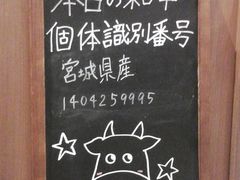 本日の和牛
個体識別番号
宮城県産
1404259995